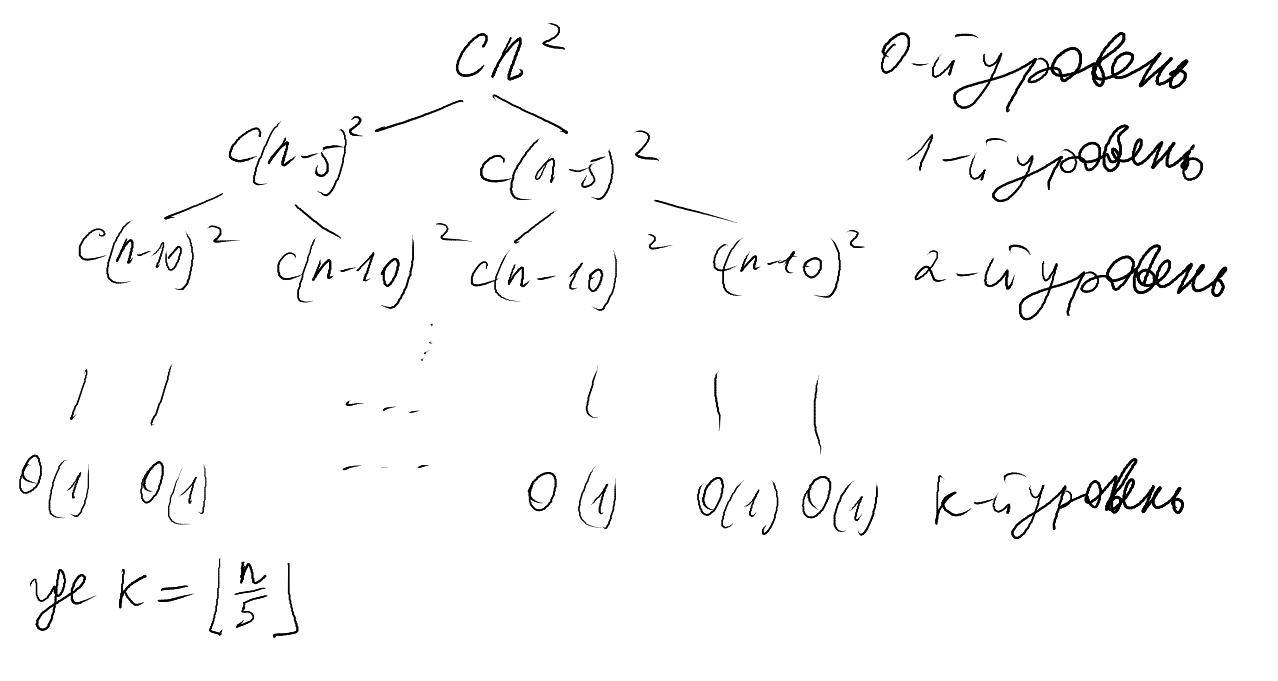 cn² 0-й уровень
c(n-5)² c(n-5)² 1-й уровень
c(n-10)² c(n-10)² c(n-10)² c(n-10)² 2-й уровень
⋮
| | --- | | |
Θ(1) Θ(1) --- Θ(1) Θ(1) Θ(1) k-й уровень
где k = ⌊n/5⌋